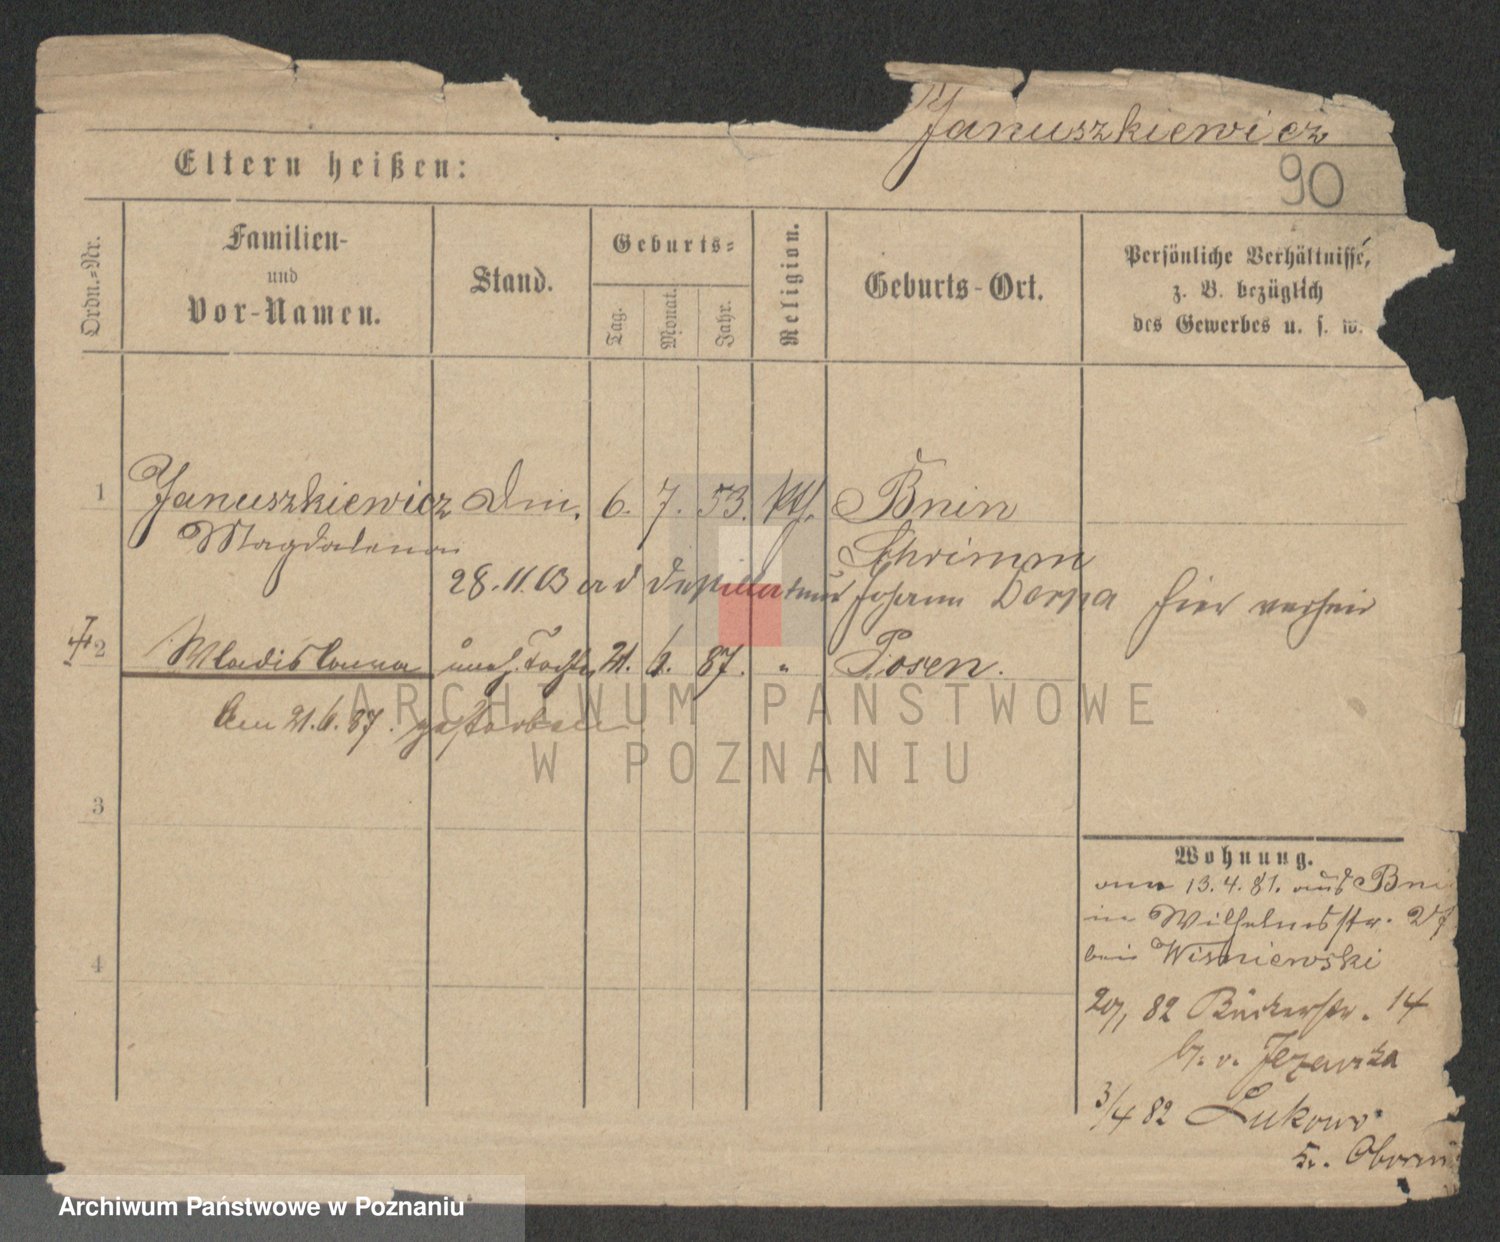 Januszkiewicz
90
Eltern heißen:
Ordn.-Nr.
Familien-
und
Vor-Namen.
Stand.
Geburts-
Tag.
Monat.
Jahr.
Religion.
Geburts-Ort.
Persönliche Verhältnisse,
z. B. bezüglich
des Gewerbes u. s. w.
1 Januszkiewicz 6. 7. 53. kth. Bnin
Magdalena Schrimm
28.11.03 Johann hier
2 Wladislawa 21. 6. 87. " Posen.
Am 21.6.87. gestorben
3
4
Wohnung.
am 13.4.81. aus Bni
in Wilhelmsstr. 27
bei Wisniewski
82 Bäckerstr. 14
b. v.
3/4 82 Lukowo
Kr. Oborni
ARCHIWUM PAŃSTWOWE
W POZNANIU
Archiwum Państwowe w Poznaniu